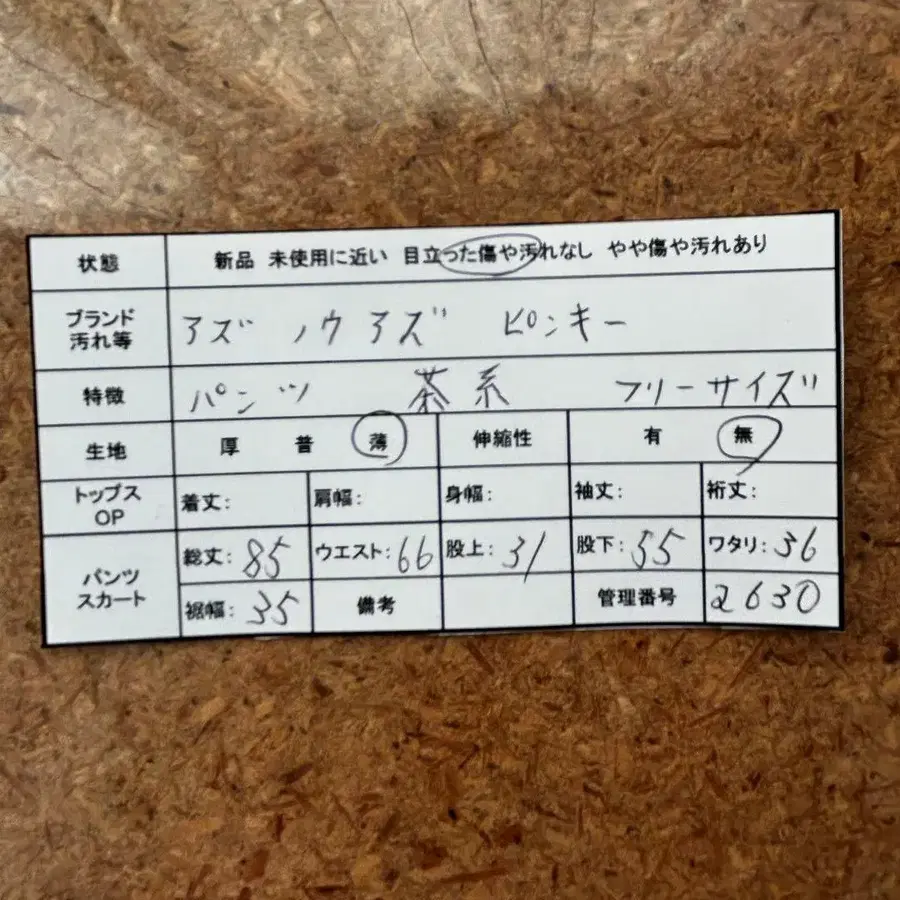 状態 新品 未使用に近い 目立った傷や汚れなし やや傷や汚れあり
ブランド 汚れ等 アズ ノウ アズ ピンキー
特徴 パンツ 茶系 フリーサイズ
生地 厚 普 薄 伸縮性 有 無
トップス OP 着丈: 肩幅: 身幅: 袖丈: 裄丈:
パンツ スカート 総丈: 85 ウエスト: 66 股上: 31 股下: 55 ワタリ: 36
裾幅: 35 備考 管理番号 2630